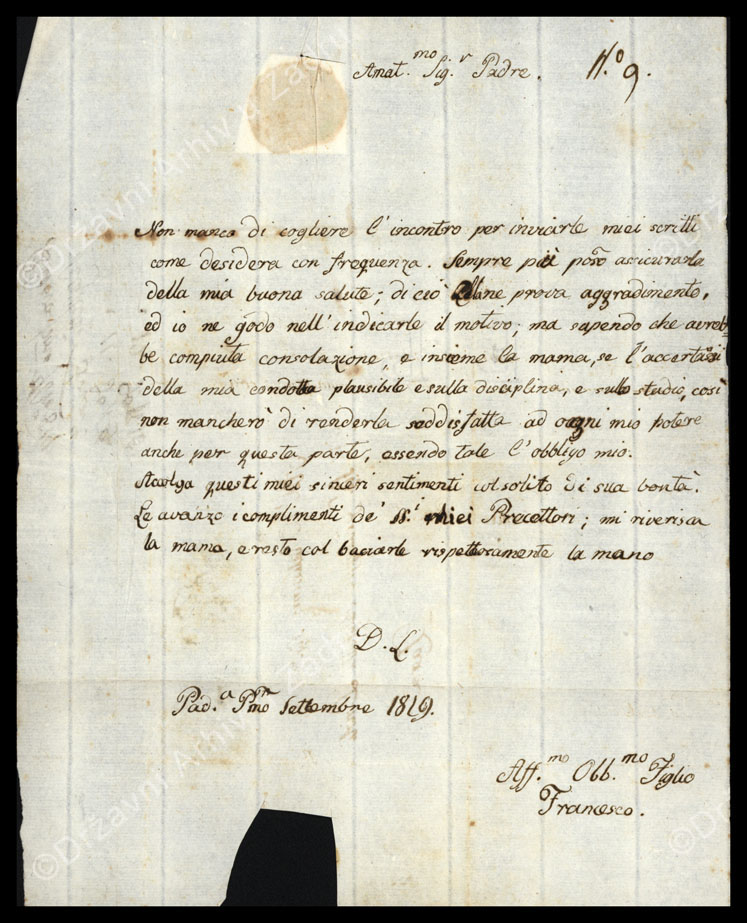 Amat.mo Sig.r Padre. N.o 9.
Non manca di cogliere l'incontro per inviarle miei scritti
come desidera con frequenza. Sempre più posso assicurarla
della mia buona salute; di ciò Ella ne prova aggradimento,
ed io ne godo nell'indicarle il motivo; ma sapendo che avreb,
be compiuta consolazione, e insieme la mama, se l'accertassi
della mia condotta plausibile e sulla disciplina, e sullo studio, così
non mancherò di renderla soddisfatta ad ogni mio potere
anche per questa parte, essendo tale l'obbligo mio.
Accolga questi miei sinceri sentimenti col solito di sua bontà.
Le avanzo i complimenti de' miei Precettori; mi riverisca
la mama, e resto col baciarle rispettosamente la mano
D. L.
Pad.a Pmo Settembre 1819.
Aff.mo Obb.mo Figlio
Francesco.
©Državni Arhiv u Zadru